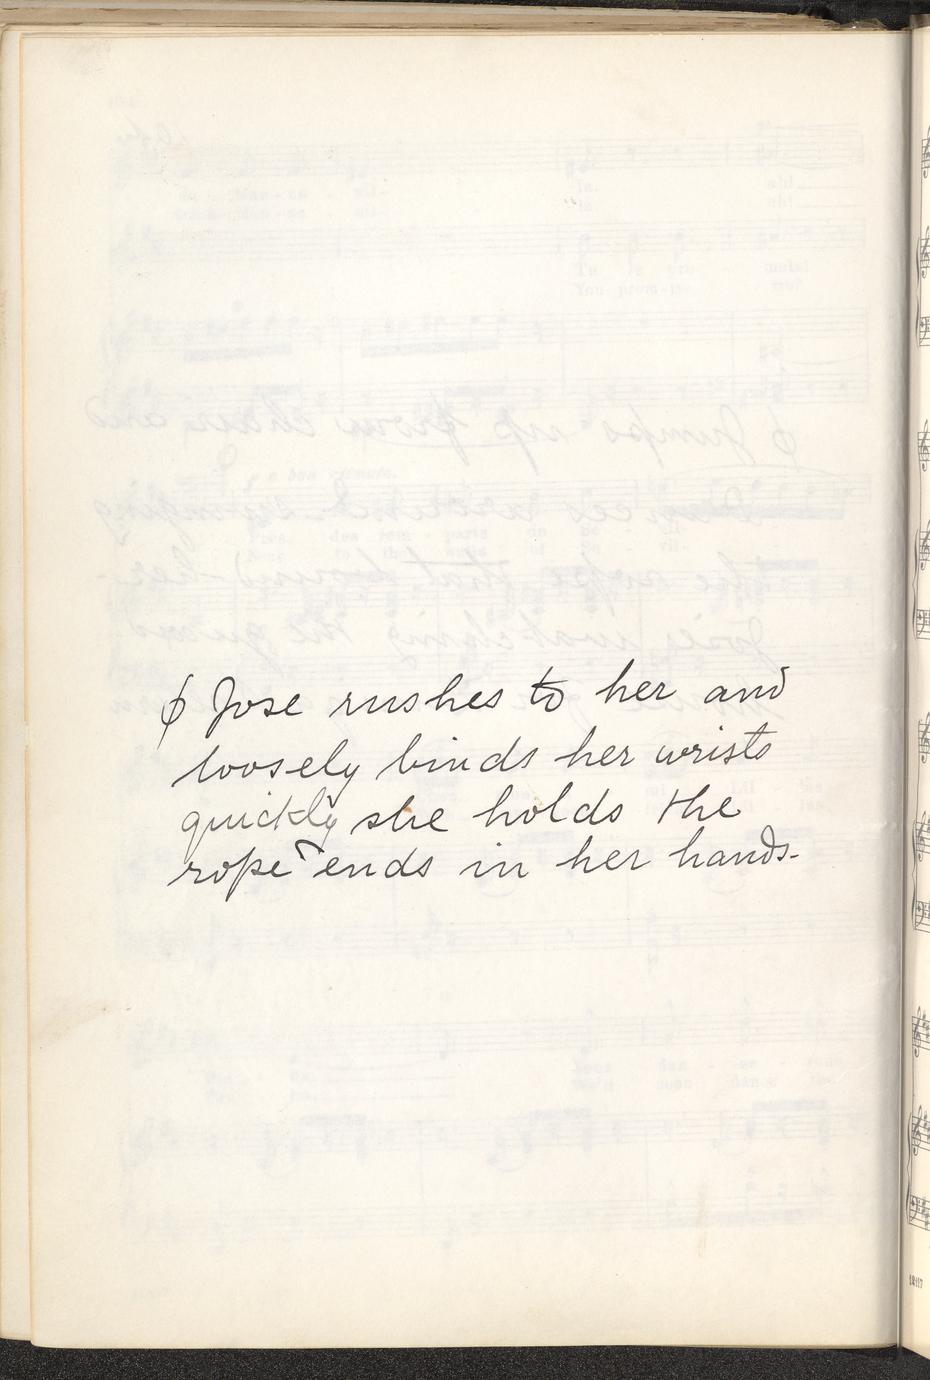 φ Jose rushes to her and
loosely binds her wrists
quickly she holds the
rope ends in her hands.